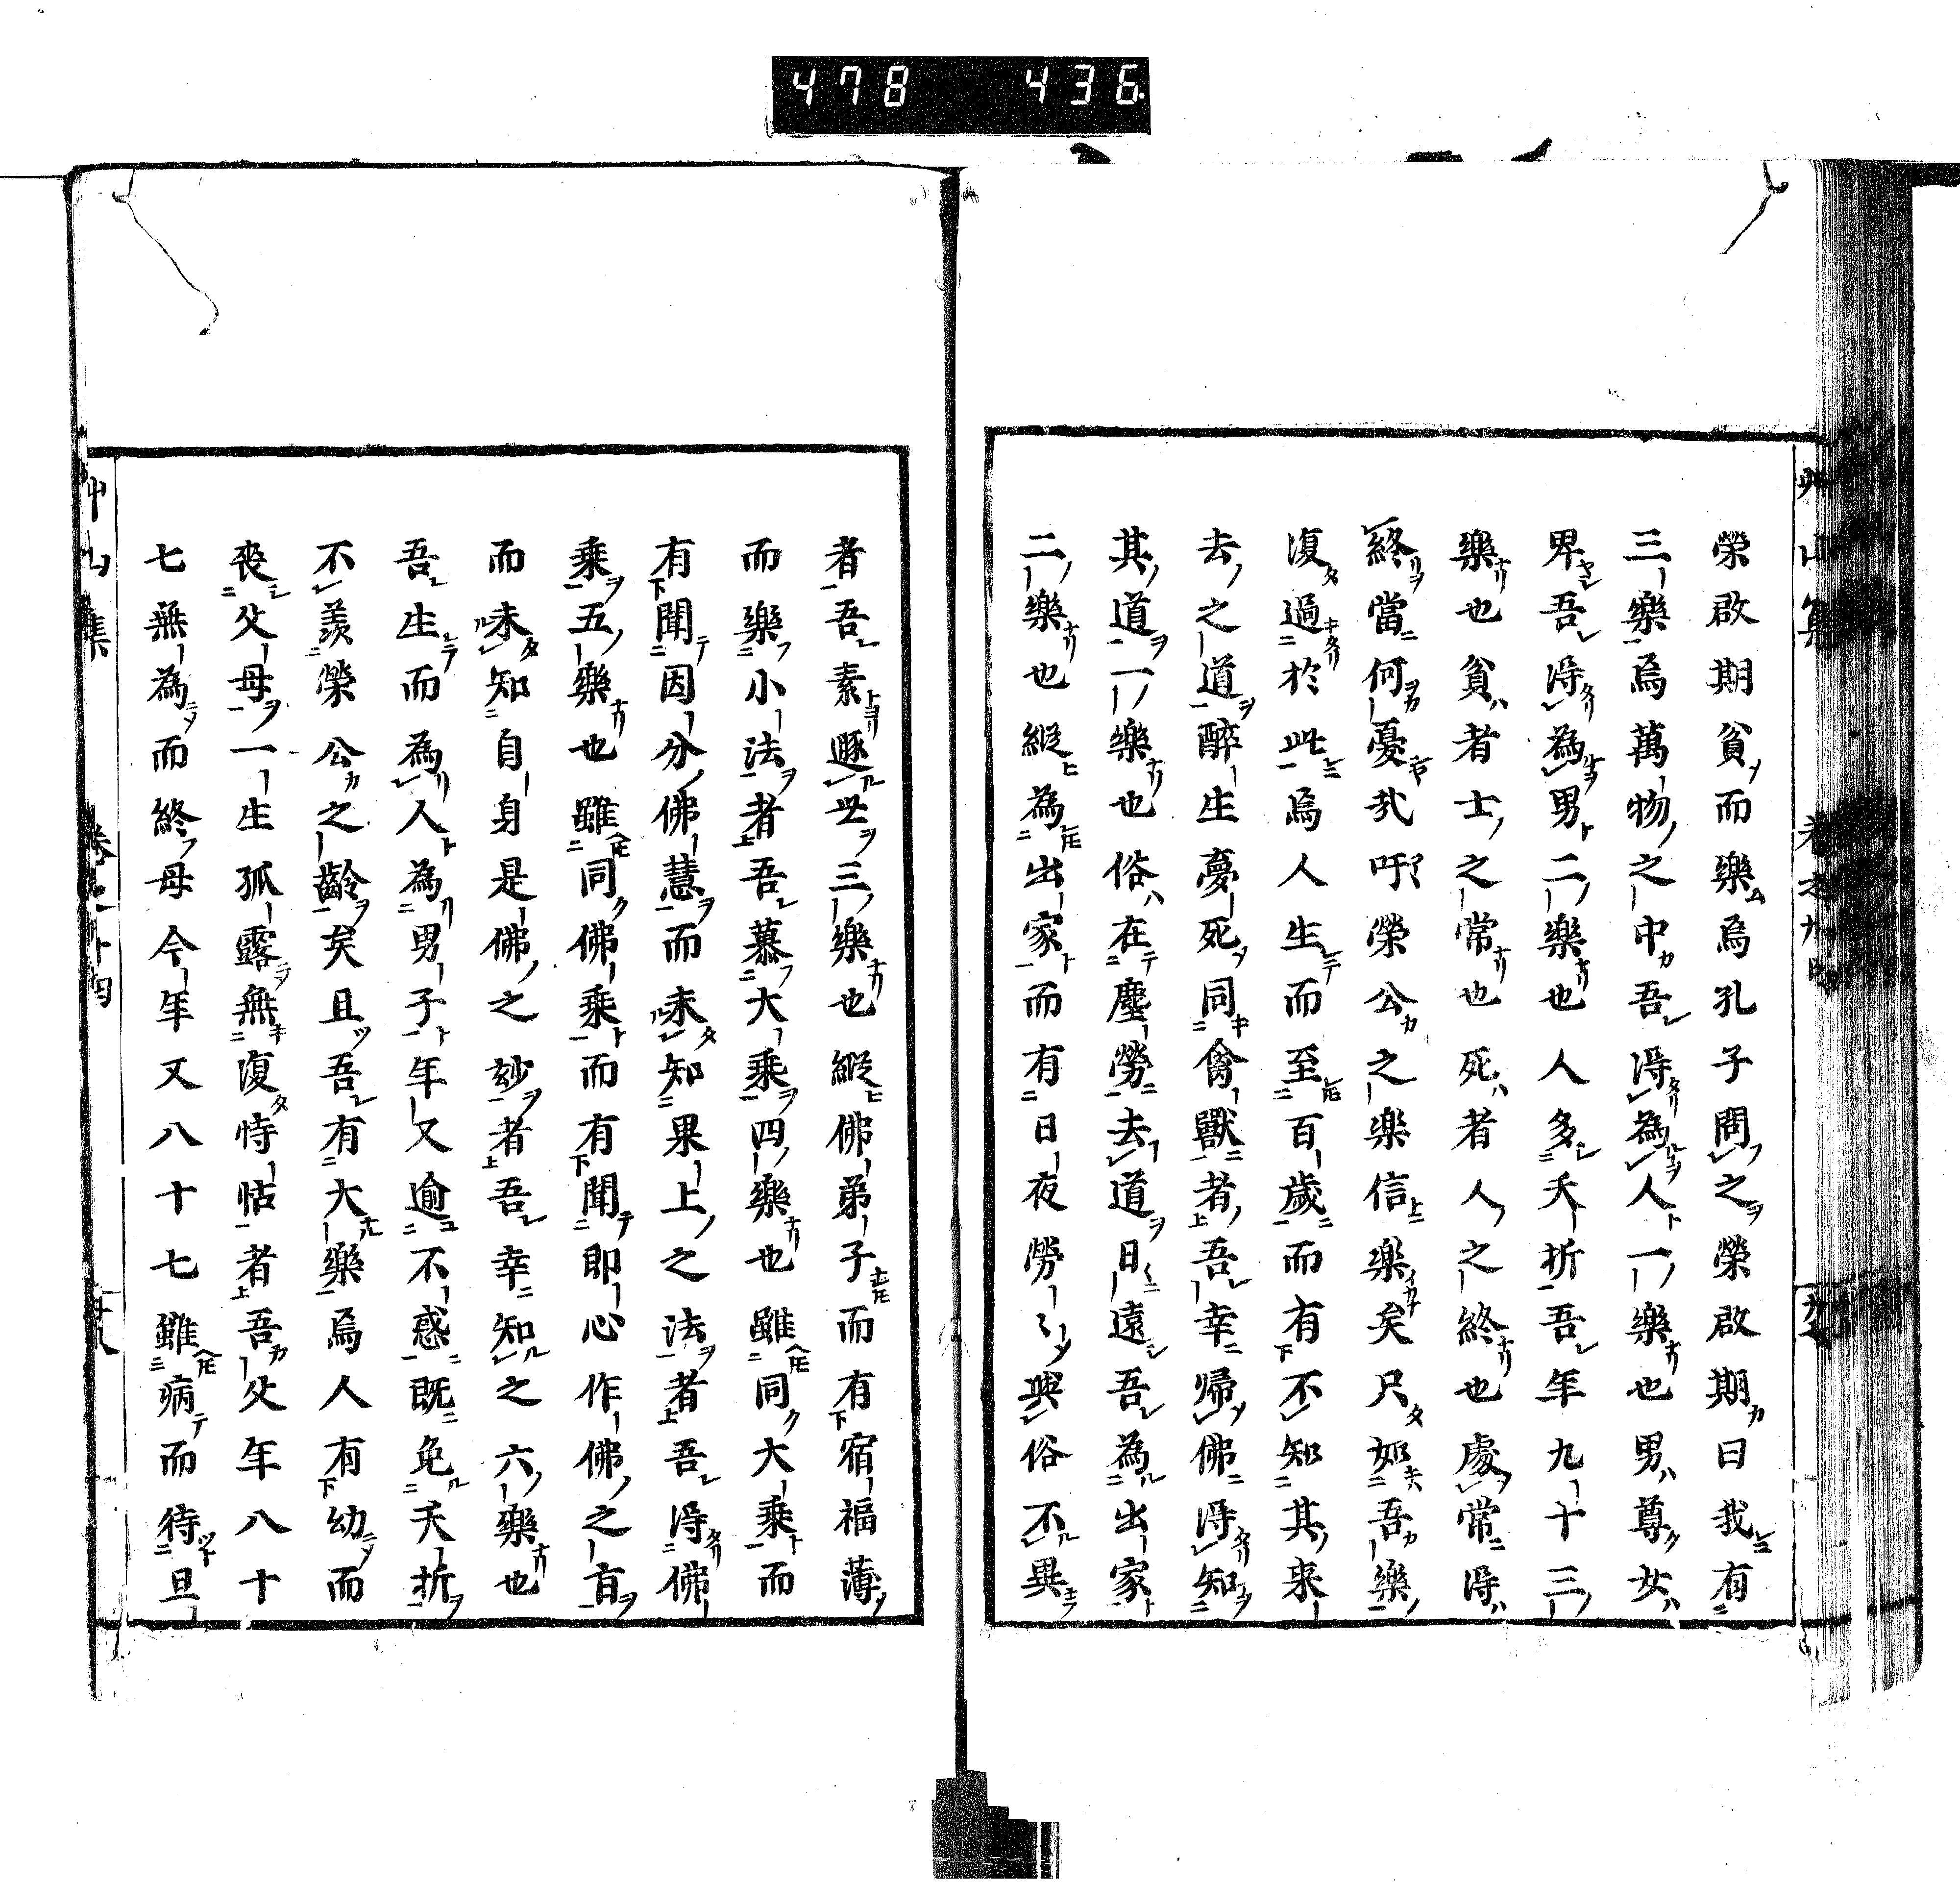 478 436
榮啟期貧而樂焉孔子問之榮啟期曰我有
三樂焉萬物之中吾得為人一樂也男尊女
卑吾得為男二樂也人多夭折吾年九十三
樂也貧者士之常也死者人之終也處常得
終當何憂㢤吁榮公之樂信樂矣只如吾樂
復過於此焉人生而至百歲而有不知其来
去之道醉生夢死同禽獸者吾幸歸佛得知
其道一樂也俗在塵勞去道日遠吾為出家
二樂也縱為出家而有日夜勞〻與俗不異
者吾素遯世三樂也縱佛弟子而有宿福薄
而樂小法者吾慕大乘四樂也雖同大乘而
有聞因分佛慧而未知果上之法者吾得佛
乘五樂也雖同佛乘而有聞即心作佛之旨
而未知自身是佛之玅者吾幸知之六樂也
吾生而為人為男子年又逾不惑既免夭折
不羨榮公之齡矣且吾有大樂焉人有幼而
喪父母一生孤露無復恃怙者吾父年八十
七無為而終母今年又八十七雖病而待旦
艸山集 卷之十四